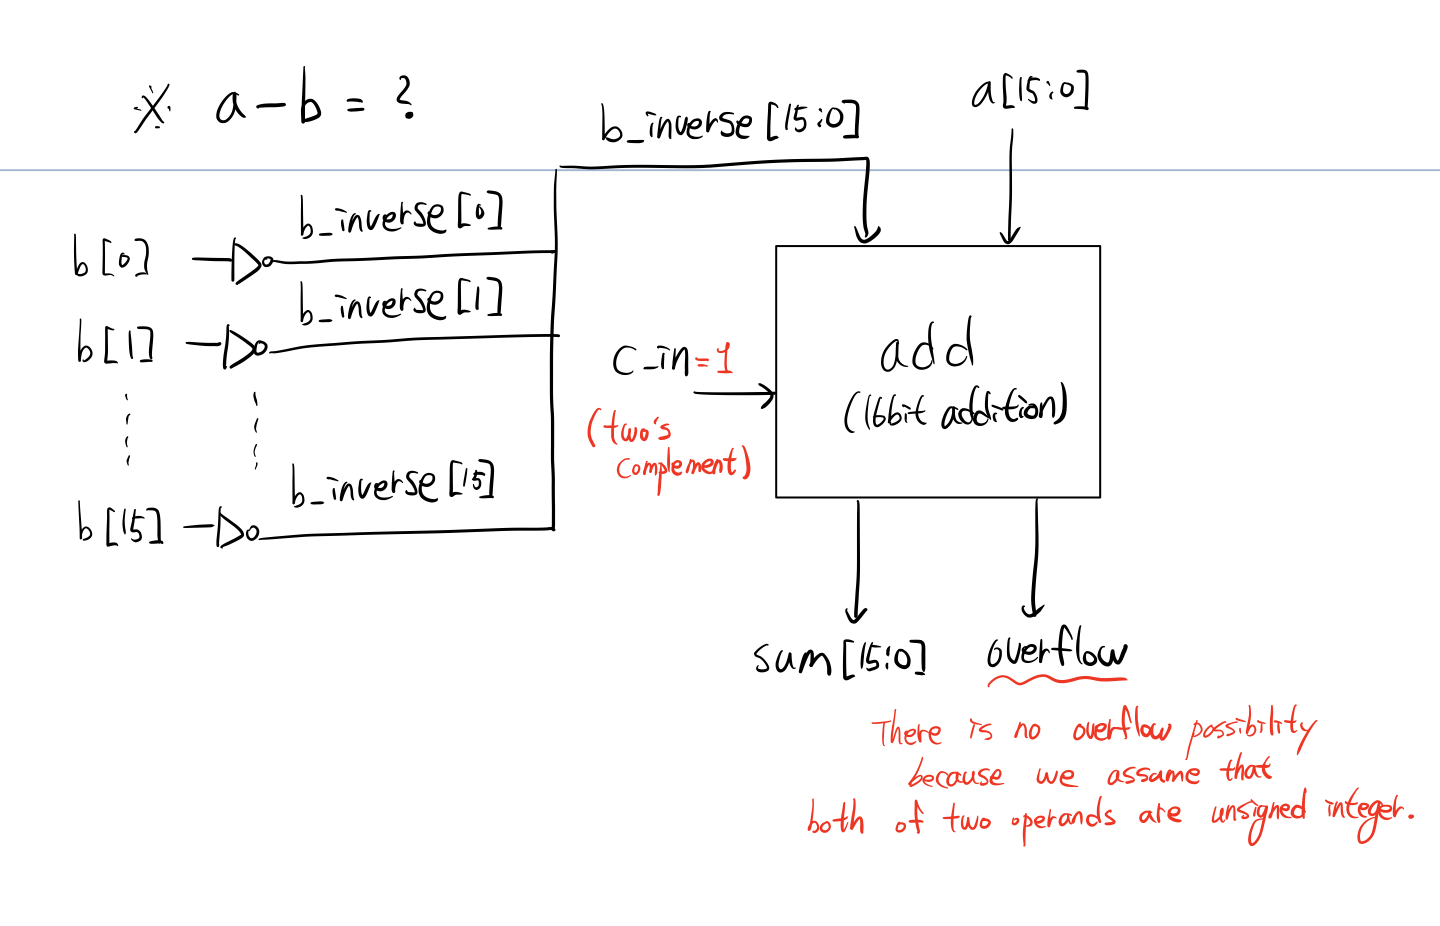 ※ a-b = ?
b_inverse[15:0]
a[15:0]
b[0]
b_inverse[0]
b[1]
b_inverse[1]
b[15]
b_inverse[15]
C_in=1
(two's
complement)
add
(16bit addition)
sum[15:0]
overflow
There is no overflow possibility
because we assume that
both of two operands are unsigned integer.